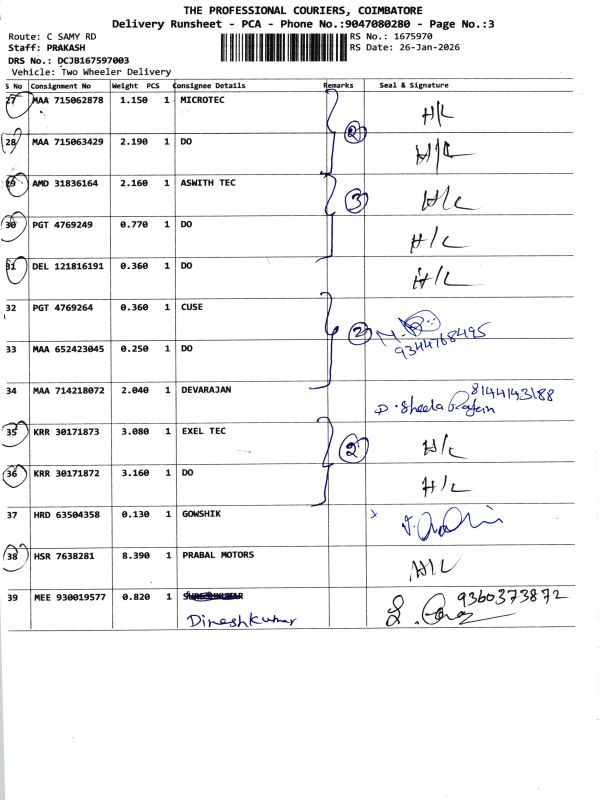 THE PROFESSIONAL COURIERS, COIMBATORE
Delivery Runsheet - PCA - Phone No.:9047080280 - Page No.:3
Route: C SAMY RD
RS No.: 1675970
Staff: PRAKASH
RS Date: 26-Jan-2026
DRS No.: DCJB167597003
Vehicle: Two Wheeler Delivery
S No Consignment No Weight PCS Consignee Details Remarks Seal & Signature
27 MAA 715062878 1.150 1 MICROTEC H/L
②
28 MAA 715063429 2.190 1 DO H/L
29 AMD 31836164 2.160 1 ASWITH TEC ③ H/L
30 PGT 4769249 0.770 1 DO H/L
31 DEL 121816191 0.360 1 DO H/L
32 PGT 4769264 0.360 1 CUSE
② 9344768495
33 MAA 652423045 0.250 1 DO
34 MAA 714218072 2.040 1 DEVARAJAN 8144143188
D. Sheela
35 KRR 30171873 3.080 1 EXEL TEC ② H/L
36 KRR 30171872 3.160 1 DO H/L
37 HRD 63504358 0.130 1 GOWSHIK
38 HSR 7638281 8.390 1 PRABAL MOTORS H/L
39 MEE 930019577 0.820 1 9360373872
Dineshkumar